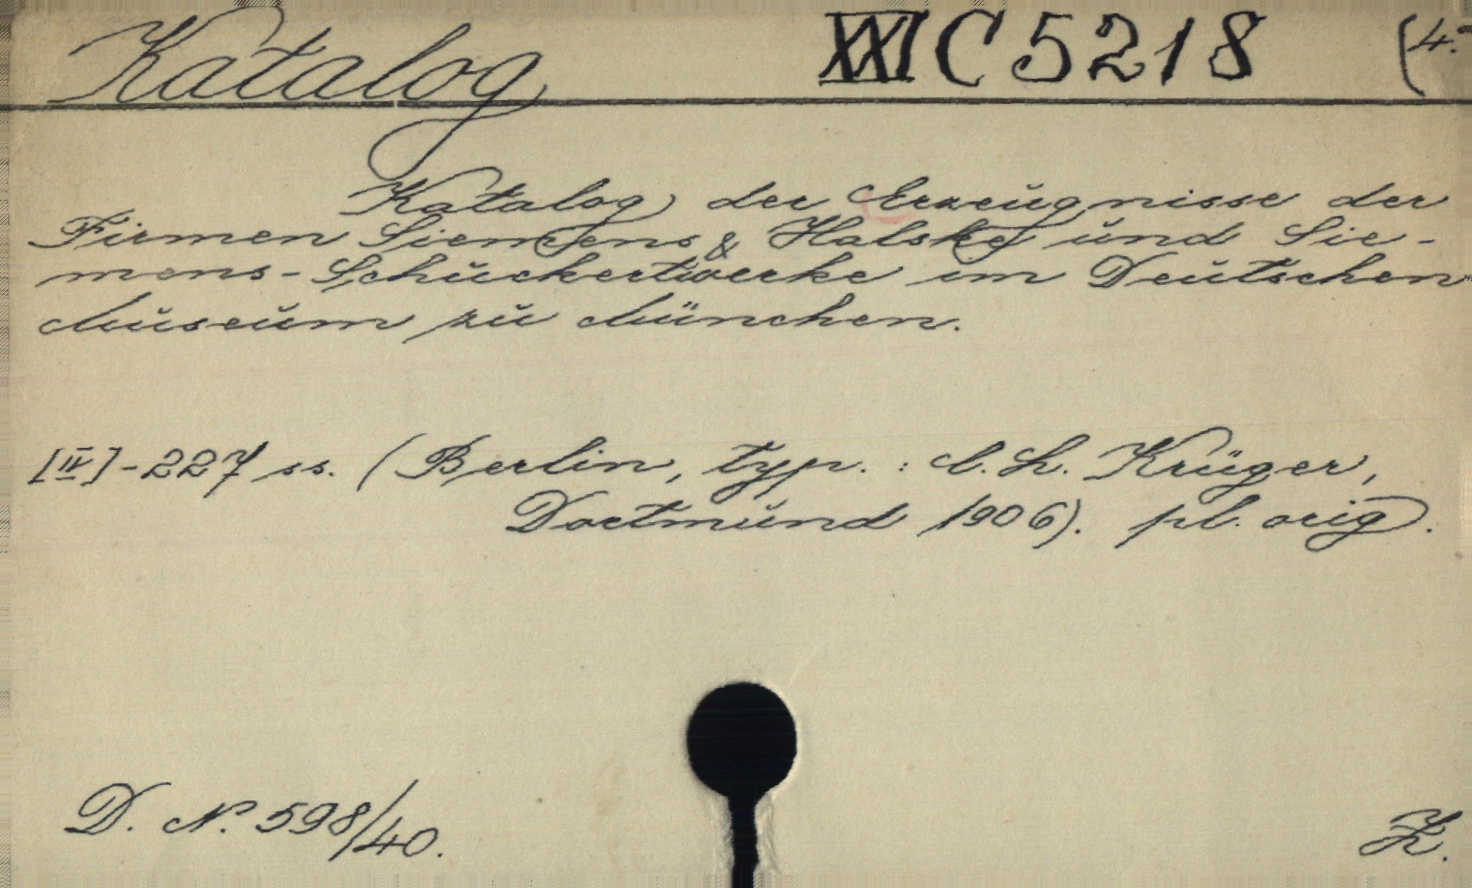 Katalog XXI C 5218 (4.
Katalog der Erzeugnisse der
Firmen Siemens & Halske und Sie-
mens-Schuckertwerke im Deutschen
Museum zu München.
[IV]-227 ss. (Berlin, typ. : C. L. Krüger,
Dortmund 1906). pl. orig.
D. N. 598/40.
Z.